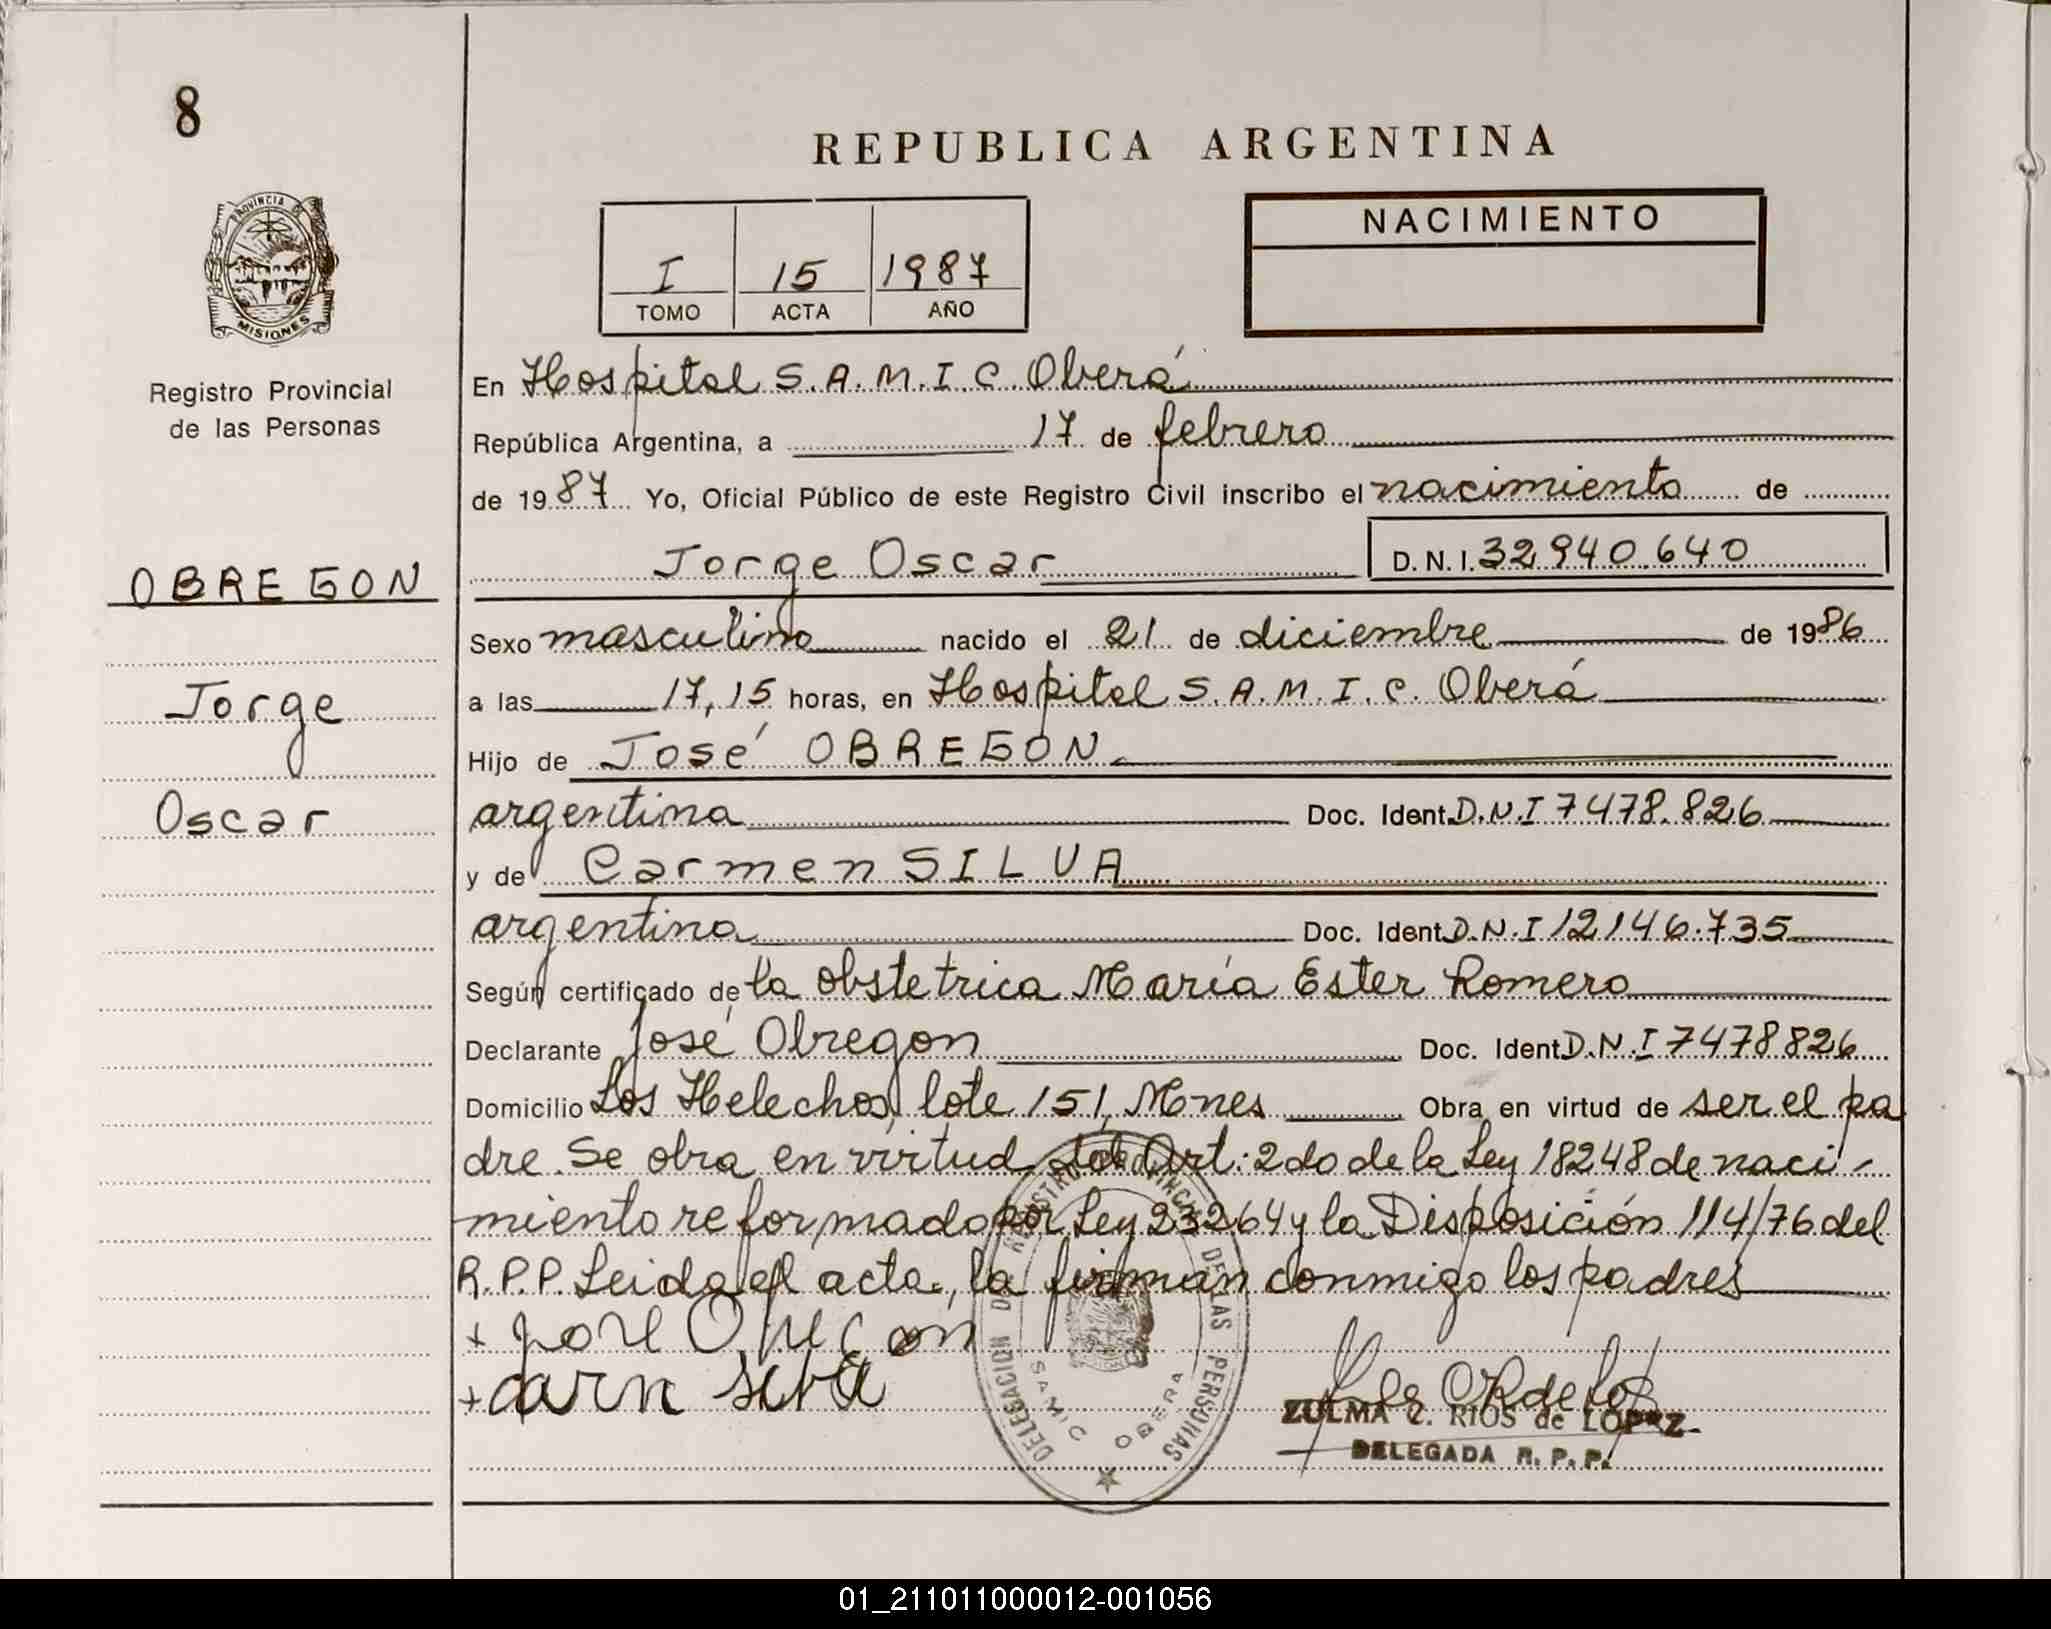 8
REPUBLICA ARGENTINA
PROVINCIA DE
MISIONES
I 15 1987
TOMO ACTA AÑO
NACIMIENTO
Registro Provincial
de las Personas
OBREGON
Jorge
Oscar
En Hospital S.A.M.I.C. Oberá
República Argentina, a 17 de febrero
de 1987 Yo, Oficial Público de este Registro Civil inscribo el nacimiento de
Jorge Oscar D.N.I. 32940.640
Sexo masculino nacido el 21 de diciembre de 1986
a las 17,15 horas, en Hospital S.A.M.I.C. Oberá
Hijo de José OBREGON.
argentina Doc. Ident. D.N.I 7478.826
y de Carmen SILVA
argentina Doc. Ident. D.N.I 12146.735
Según certificado de la obstetrica María Ester Romero
Declarante José Obregon Doc. Ident. D.N.I 7478826
Domicilio Los Helechos, lote 151, Mnes Obra en virtud de ser el pa
dre. Se obra en virtud del Art: 2do de la Ley 18248 de naci-
miento reformado por Ley 23264 y la Disposición 114/76 del
R.P.P. Leida el acta, la firman conmigo los padres
+
+ carn silva
DELEGACION DO REGISTRO PROVINCIAL DE LAS PERSONAS
SAMIC OBERA
ZULMA C. RIOS de LOPEZ
DELEGADA R. P. P.
01_211011000012-001056